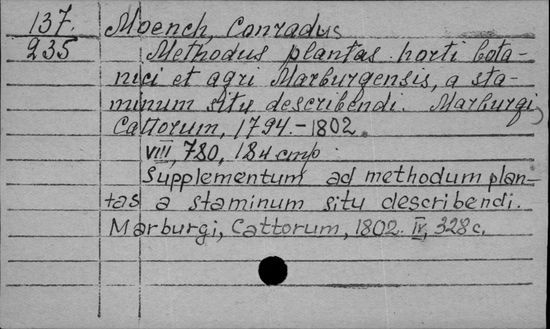 137. Moench, Conradus
235 Methodus plantas horti bota-
nici et agri Marburgensis, a sta-
minum situ describendi. Marburgi,
Cattorum, 1794.-1802.
VIII, 780, 184 cmp.
Supplementum ad methodum plan-
tas a staminum situ describendi.
Marburgi, Cattorum, 1802. IV, 328 c.